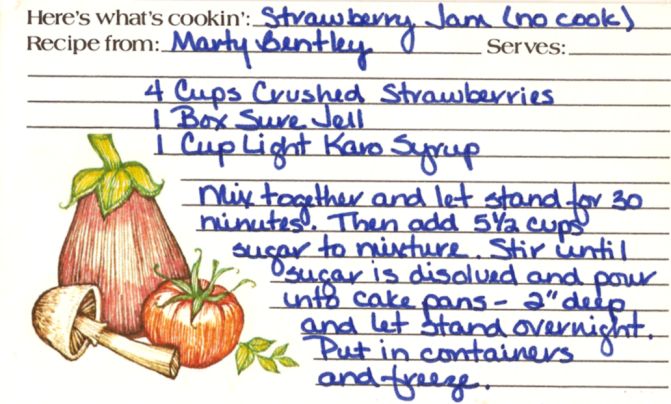 Here's what's cookin': Strawberry Jam (no cook)
Recipe from: Marty Bentley Serves:
4 Cups Crushed Strawberries
1 Box Sure Jell
1 Cup Light Karo Syrup
Mix together and let stand for 30
minutes. Then add 5½ cups
sugar to mixture. Stir until
sugar is disolved and pour
into cake pans - 2" deep
and let stand overnight.
Put in containers
and freeze.